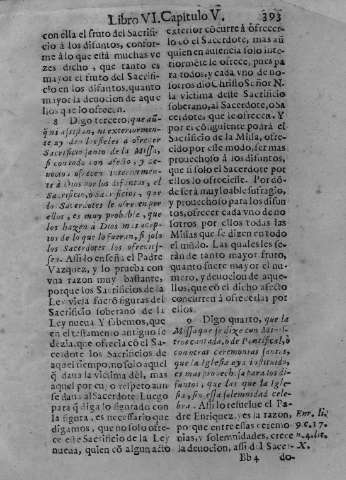 Libro VI. Capitulo V. 393
con ella el fruto del Sacrifi-
cio à los difuntos, confor-
me à lo que està muchas ve-
zes dicho, que tanto es
mayor el fruto del Sacrifi-
cio en los difuntos, quanto
mayor la deuocion de aque
llos que lo ofrecen.
8 Digo tercero, que aũ
q̃ assistan, ni exteriormen-
te ayuden los fieles a ofrecer
Sacrificio santo de la Missa,
si con todo con afecto, y
ofrecen interiormen-
te à Dios por los difuntos, el
Sacrificio, ò Sacrificios, que
los Sacerdotes le ofrecen por
ellos, es muy probable, que
los hazen à Dios mas acep-
tos de lo que lo fueran, si solo
los Sacerdotes los ofrecies-
sen. Assi lo enseña el Padre
Vazquez, y lo prueba con
vna razon muy bastante,
porque los Sacrificios de la
Ley vieja fuerõ figuras del
Sacrificio soberano de la
Ley nueua Y sabemos, que
en el testamento antiguo se
dezia, que ofrecia cõ el Sa-
cerdote los Sacrificios de
aquel tiempo, no solo aquel
q̃ daua la victima dèl, mas
aquel por cuyo respeto aun
se daua al Sacerdote. Luego
para q̃ diga lo figurado con
la figura, es necessario que
digamos, que no solo ofre-
ce este Sacrificio de la Ley
nueua, quien cõ algun acto
exterior cõcurre à ofrecer-
lo cõ el Sacerdote, mas aũ
quien en ausencia solo inte-
riormẽte le ofrece, pues pa
ra todos, y cada vno de no-
sotros dio Christo Señor N.
la victima deste Sacrificio
soberano, al Sacerdote, ò Sa
cerdotes, que le ofrecen. Y
por el cõsiguiente podrà el
Sacrificio de la Missa, ofre-
cido por este modo, ser mas
prouechoso à los difuntos,
que si solo el Sacerdote por
ellos lo ofreciesse. Por dõ-
de serà muy loable sufragio,
y prouechoso para los difun
tos, ofrecer cada vno de no
sotros por ellos todas las
Missas que se dizen en todo
el mũdo. Las quales les se-
ràn de tanto mayor fruto,
quanto fuere mayor el nu-
mero, y deuocion de aque-
llos, que cõ el dicho afecto
concurren à ofrecerlas por
ellos.
9 Digo quarto, que la
Missa que se dize con
cantada, ò de Pontifical, ò
con otras ceremonias santas,
que la Iglesia aya instituido,
es mas prouechosa para los di-
funtos, que las que la Igle-
sia, sin essa solemnidad cele-
bra. Assi lo resuelue el Pa-
dre Enriquez, y es la razon,
por que entre essas ceremo-
nias, y solemnidades, crece
la deuocion, assi del Sacer-
Enr. li.
9. c. 17.
n. 4. lit.
X.
Bb 4 do-